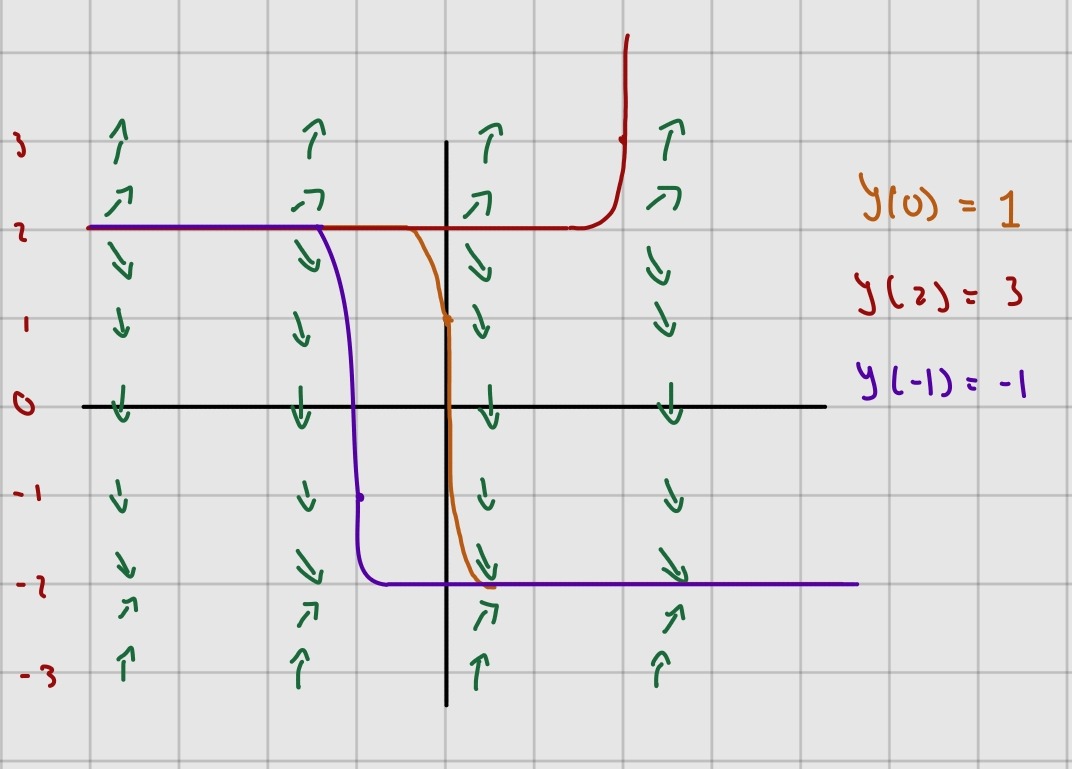 3
2
1
0
-1
-2
-3
y(0) = 1
y(2) = 3
y(-1) = -1